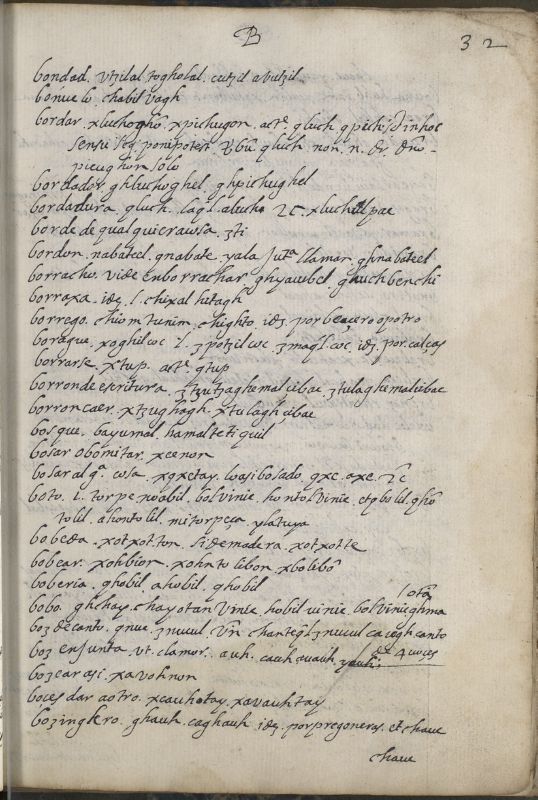 B 32
bondad. vtzilal. togholal. cutzil a butzil.
boñuelo. chabil vagh
bordar. xluchogho. xpichugon. act.e qluch qpich
sensu seq. ponipotest qluch. non. n.
picughon solo
bordador. ghluchoghel. ghpichughel
bordadura. qluch. l. aluch. xluchulpae
borde de qualquiera cosa. ʒti
bordon. nabateel. qnabate. yala llamar. ghnabateel
borracho. vide enborrachar. ghyaubel. ghuchbenchi
borraxa. idẽ. l. chixal hitagh
borrego. chiom tunim. chighto. idẽ. por beçerro o potro
boragua. xoghil coc l. ʒpotzil coc. ʒmaql coc idẽ. por. calças
borrarse. xtup. act.e qtup
borron de escritura. ʒtzutzaghemal cibac. ʒtulaghemal cibac
borron caer. xtzughagh. xtulagh cibac
bosque. bayumal. hamaltetiquil
bosar o bomitar. xcenon
bosar alg.a cosa. xqxetay. lo asi bosado. qxe. axe.
boto. i. torpe. xoabil. bolvinic. hontolvinic. et
tolil. ahontolil. mi torpeça y la tuya
bobeda. xotxot.ton. si de madera. xotxotte
bobear. xohbion. xohntolibon. xbolibõ
boberia. ghobil. ahobil. ghobil
bobo. ghchay. chayotan vinic. hobil vinic. bolvinic ghma
l otã
boz de canto. qnuc. ʒnucul. ʒnucul cauegh canto
boz en junta. vt. clamor. auh. cauh auauh yauh. de 4 voces
bozear asi. xavohnon
boces dar a otro. xcauhotay. xavauhtay
bozinglero. ghauh. caghauh. idẽ. por pregoneros. et chaue
chaue